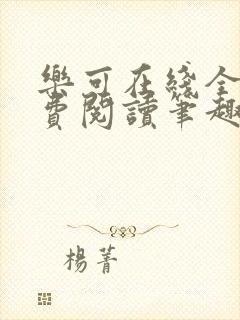 樂可在綫全
費閱讀筆趣
楊菁